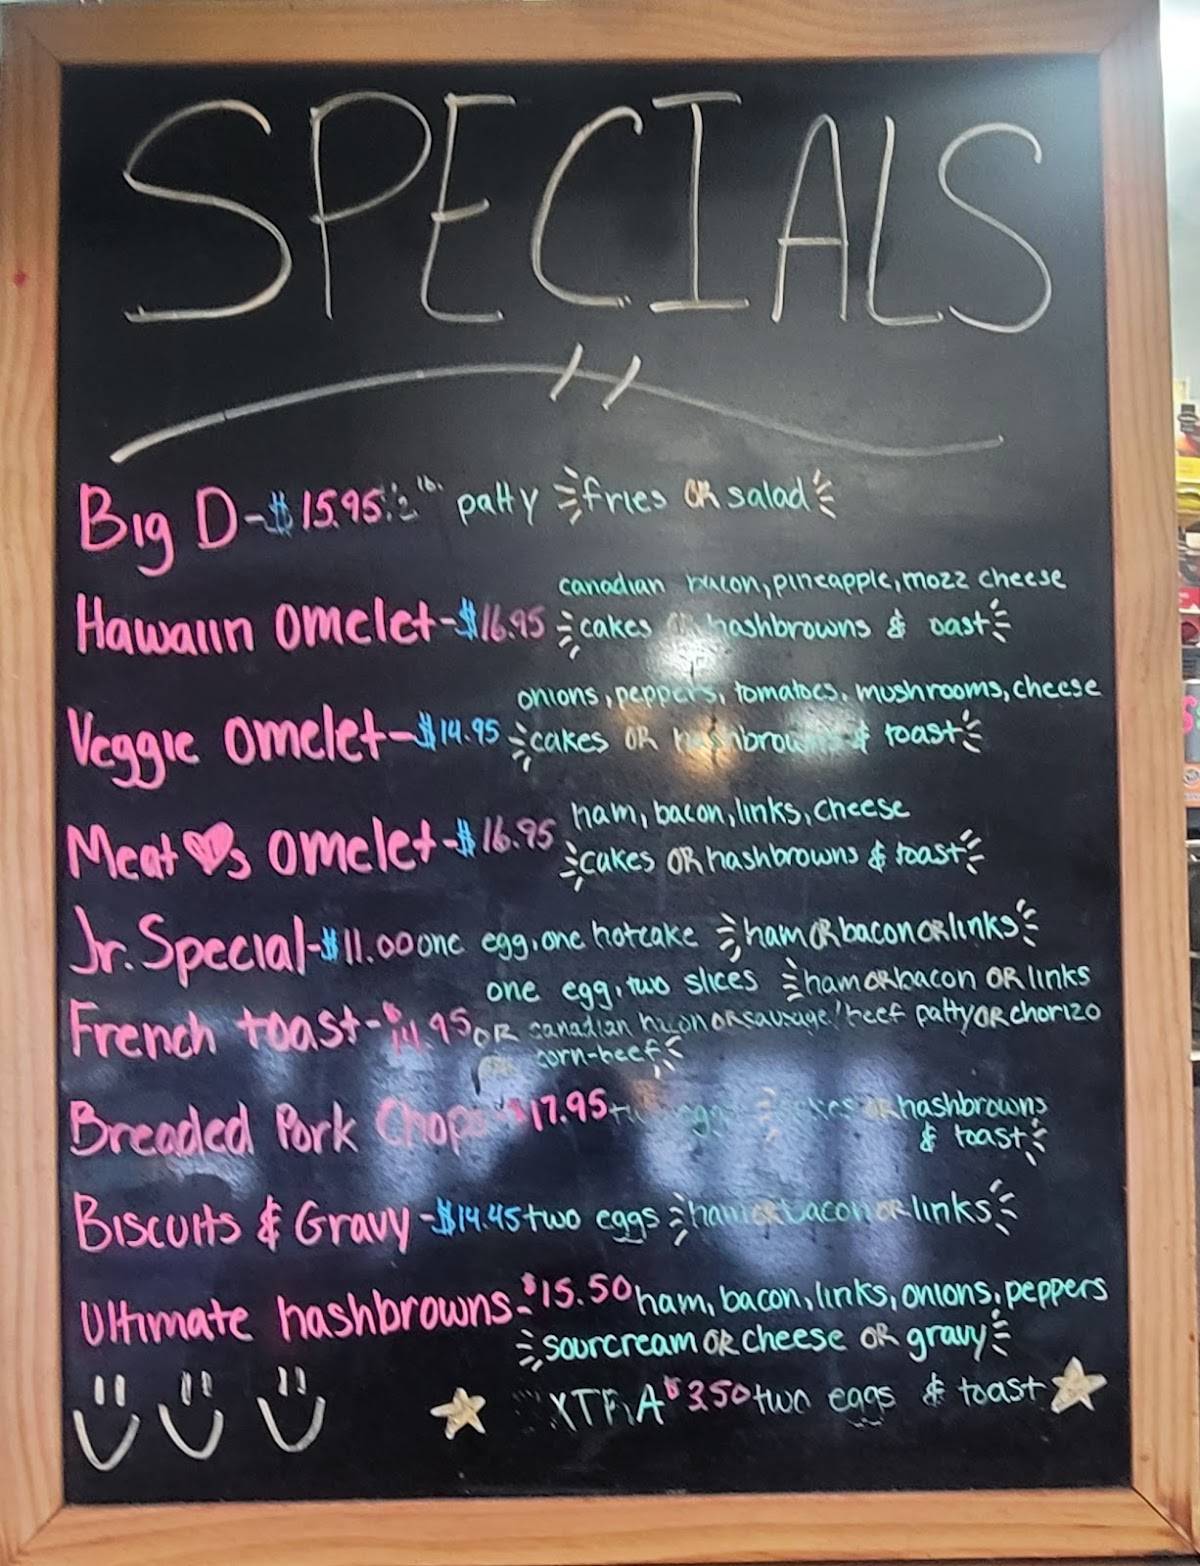 SPECIALS
Big D-$15.95 1/2 lb. patty fries OR salad
canadian bacon, pineapple, mozz cheese
Hawaiin omelet-$16.95 cakes OR hashbrowns & oast
onions, peppers, tomatoes, mushrooms, cheese
Veggie omelet-$14.95 cakes OR hashbrowns & toast
ham, bacon, links, cheese
Meat ♥s omelet-$16.95 cakes OR hashbrowns & toast
Jr. Special-$11.00 one egg, one hotcake ham OR bacon OR links
one egg, two slices ham OR bacon OR links
French toast-$14.95 OR canadian bacon OR sausage/beef patty OR chorizo
corn-beef
Breaded Pork Chops $17.95 two eggs cakes OR hashbrowns
& toast
Biscuits & Gravy-$14.45 two eggs ham OR bacon OR links
Ultimate hashbrowns-$15.50 ham, bacon, links, onions, peppers
sourcream OR cheese OR gravy
XTRA $3.50 two eggs & toast